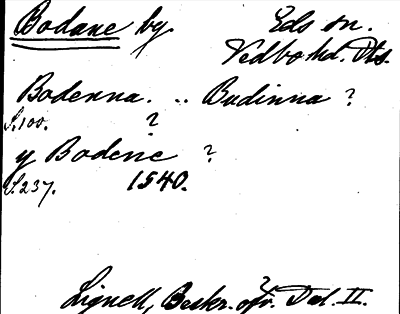 Bodane by Eds sn.
Vedbo hd. Dls.
Bodenna. .. Budinna ?
S. 100. ?
y Bodene ?
S. 237. 1540.
Lignell, Beskr. öfv. Dal. II.